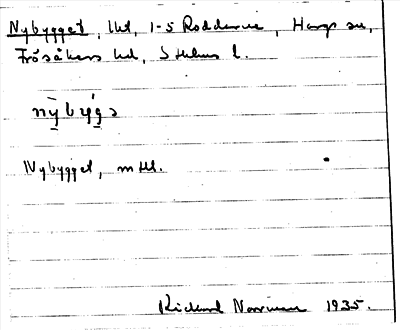 Nybygget, lht, 1-5 Roddarne, Hargs sn,
Frösåkers hd, Sthlms l.
nỳbýgə
Nybygget, mtl.
Rickard Norrman 1935.